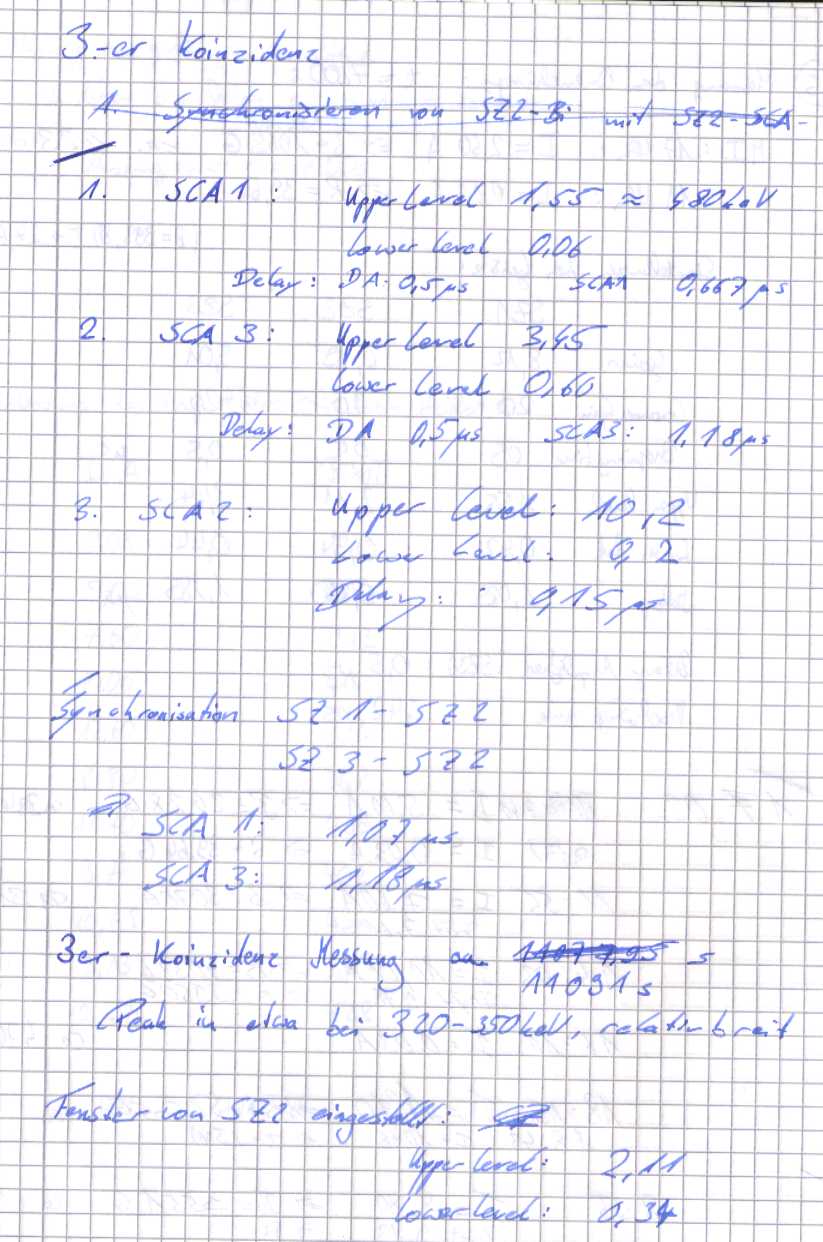 3-er Koinzidenz
1. Synchronisieren von SZ2-Bi mit SZ2-SCA-
1. SCA1: Upper Level 1,55 ≈ 580keV
Lower Level 0,06
Delay: DA 0,5µs SCA1 0,667µs
2. SCA 3: Upper Level 3,45
Lower Level 0,60
Delay: DA 0,5µs SCA3: 1,18µs
3. SCA2: Upper Level: 10,2
Lower Level: 0,2
Delay: 0,15µs
Synchronisation SZ 1 - SZ 2
SZ 3 - SZ 2
SCA 1: 1,07µs
SCA 3: 1,18µs
3er - Koinzidenz Messung s
11091s
Peak in etwa bei 320-350keV, relativ breit
Fenster von SZ2 eingestellt:
Upper Level: 2,11
Lower Level: 0,34